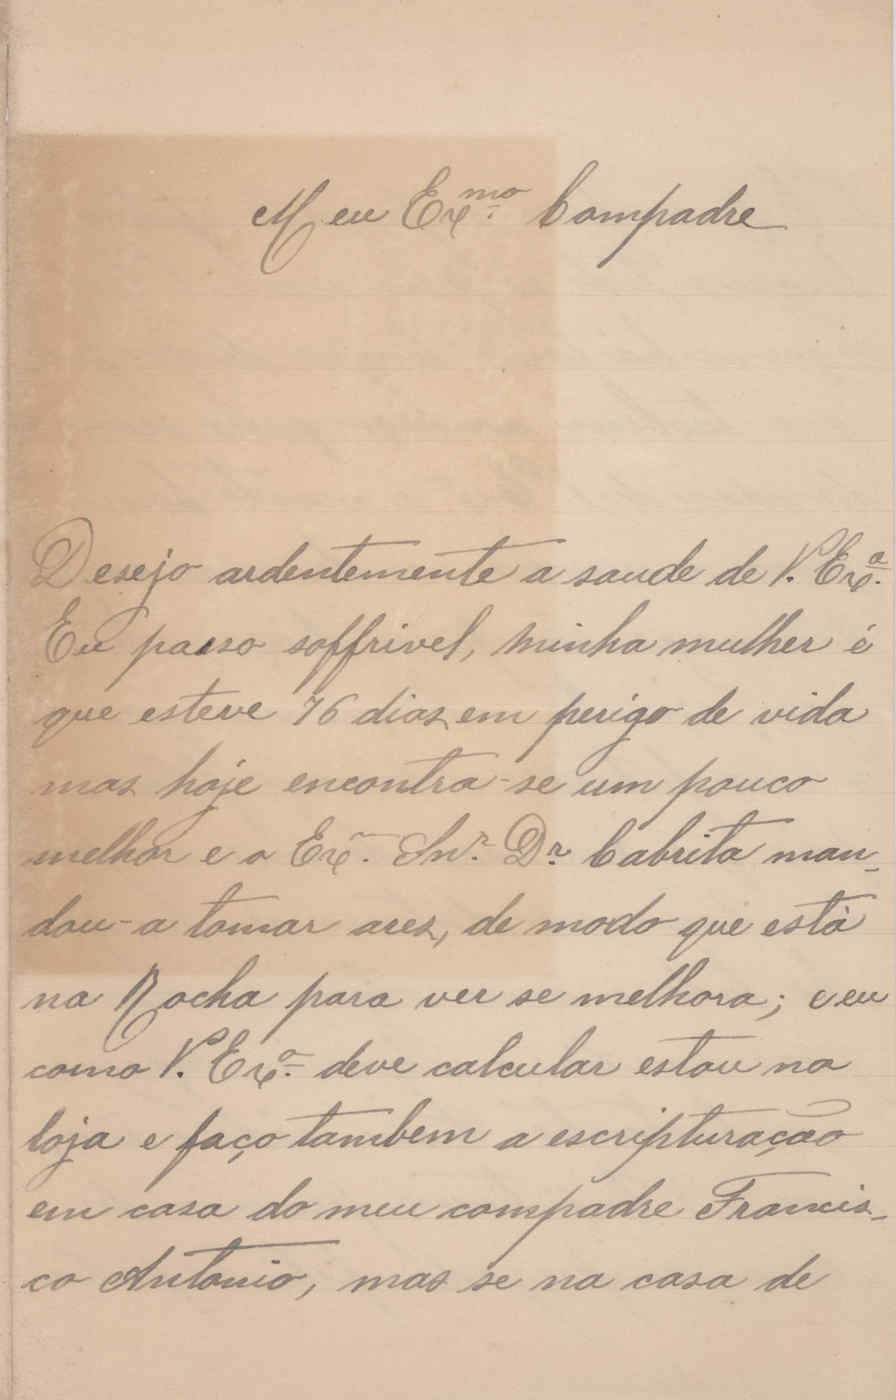 Meu Exmo. Compadre
Desejo ardentemente a saude de V. Exa.
Eu passo soffrivel, minha mulher é
que esteve 76 dias em perigo de vida
mas hoje encontra-se um pouco
melhor e o Exmo. Snr. Dr. Cabrita man-
dou-a tomar ares, de modo que está
na Rocha para ver se melhora; e eu
como V. Exa. deve calcular estou na
loja e faço tambem a escripturação
em casa do meu compadre Francis-
co Antonio, mas se na casa de